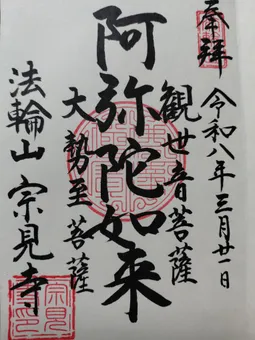 奉拝
令和八年三月廿一日
観世音菩薩
阿弥陀如来
大勢至菩薩
法輪山 宗見寺
宗見寺印